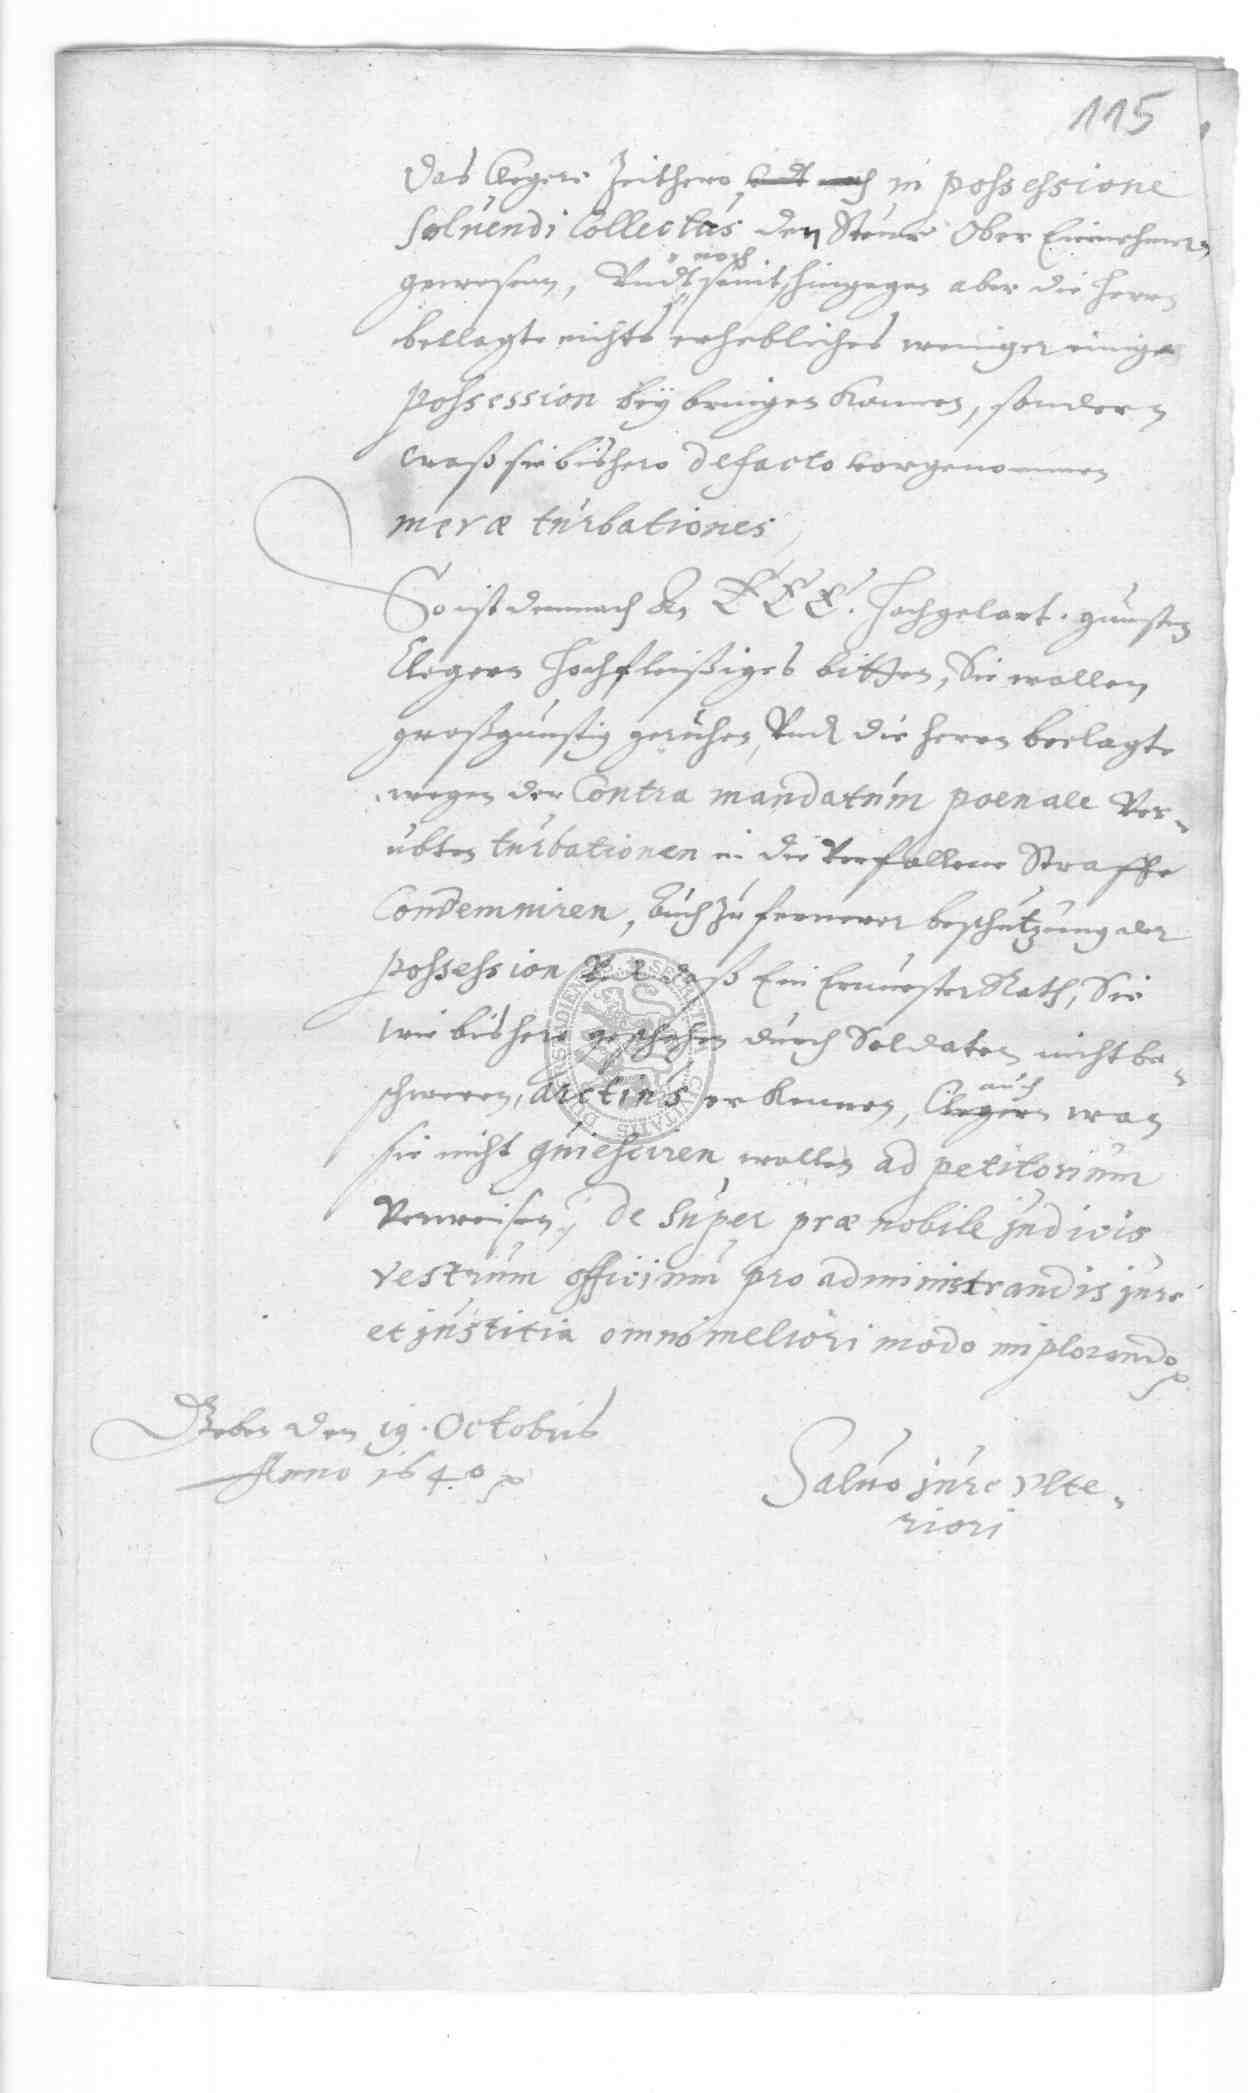 115
das Clegere Zeithero, in possessione
solvendi Collectas den Steuer Ober Einnehmern
gewesen, Undt noch seint, hingegen aber die Herrn
beklagte nichts erhebliches weniger einige
possession bey bringen konnen, sondern
was sie bishero de facto vorgenommen
meræ turbationes
So ist demnach E E E. Hochgelart. gunsten
Clegern hochfleissiges bitten, Sie wollen
grossgunstig geruhen, Undt die Herrn beclagte
wegen der Contra mandatum poenale Ver-
ubten turbationen in die Verfallene Straffe
Condemniren, Auch zu fernerer beschutzung der
possession das Ein Ernvester Rath, Sie
wie bishero geschehen durch Soldaten nicht be-
schweren, arctius erkennen, auch wan
sie nicht quiesciren wollen ad petitorium
Verweisen, de super præ nobile judicis
vestrum officium pro administrandis jure
et justitia omni meliori modo implorando
Geben den 19. Octobris
Anno 1640
Salvo jure Ulte-
riori